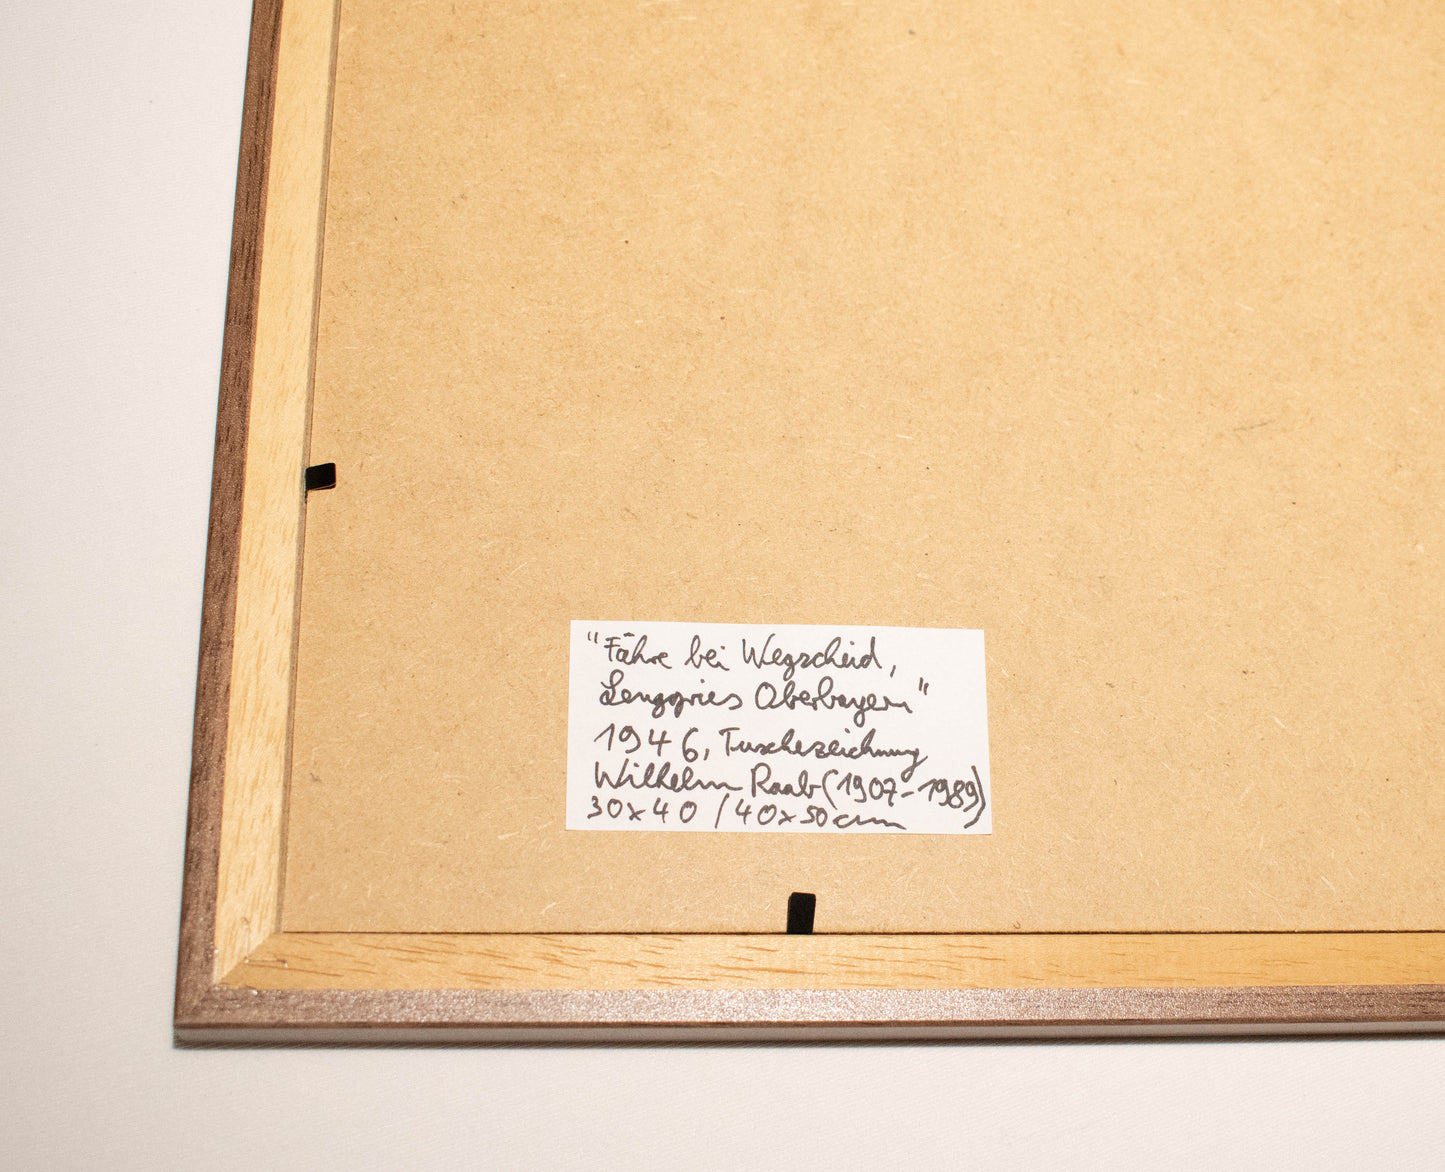 "Fähre bei Wegscheid,
Lenggries Oberbayern"
1946, Tuschezeichnung
Wilhelm Raab (1907-1989)
30x40 / 40x50cm